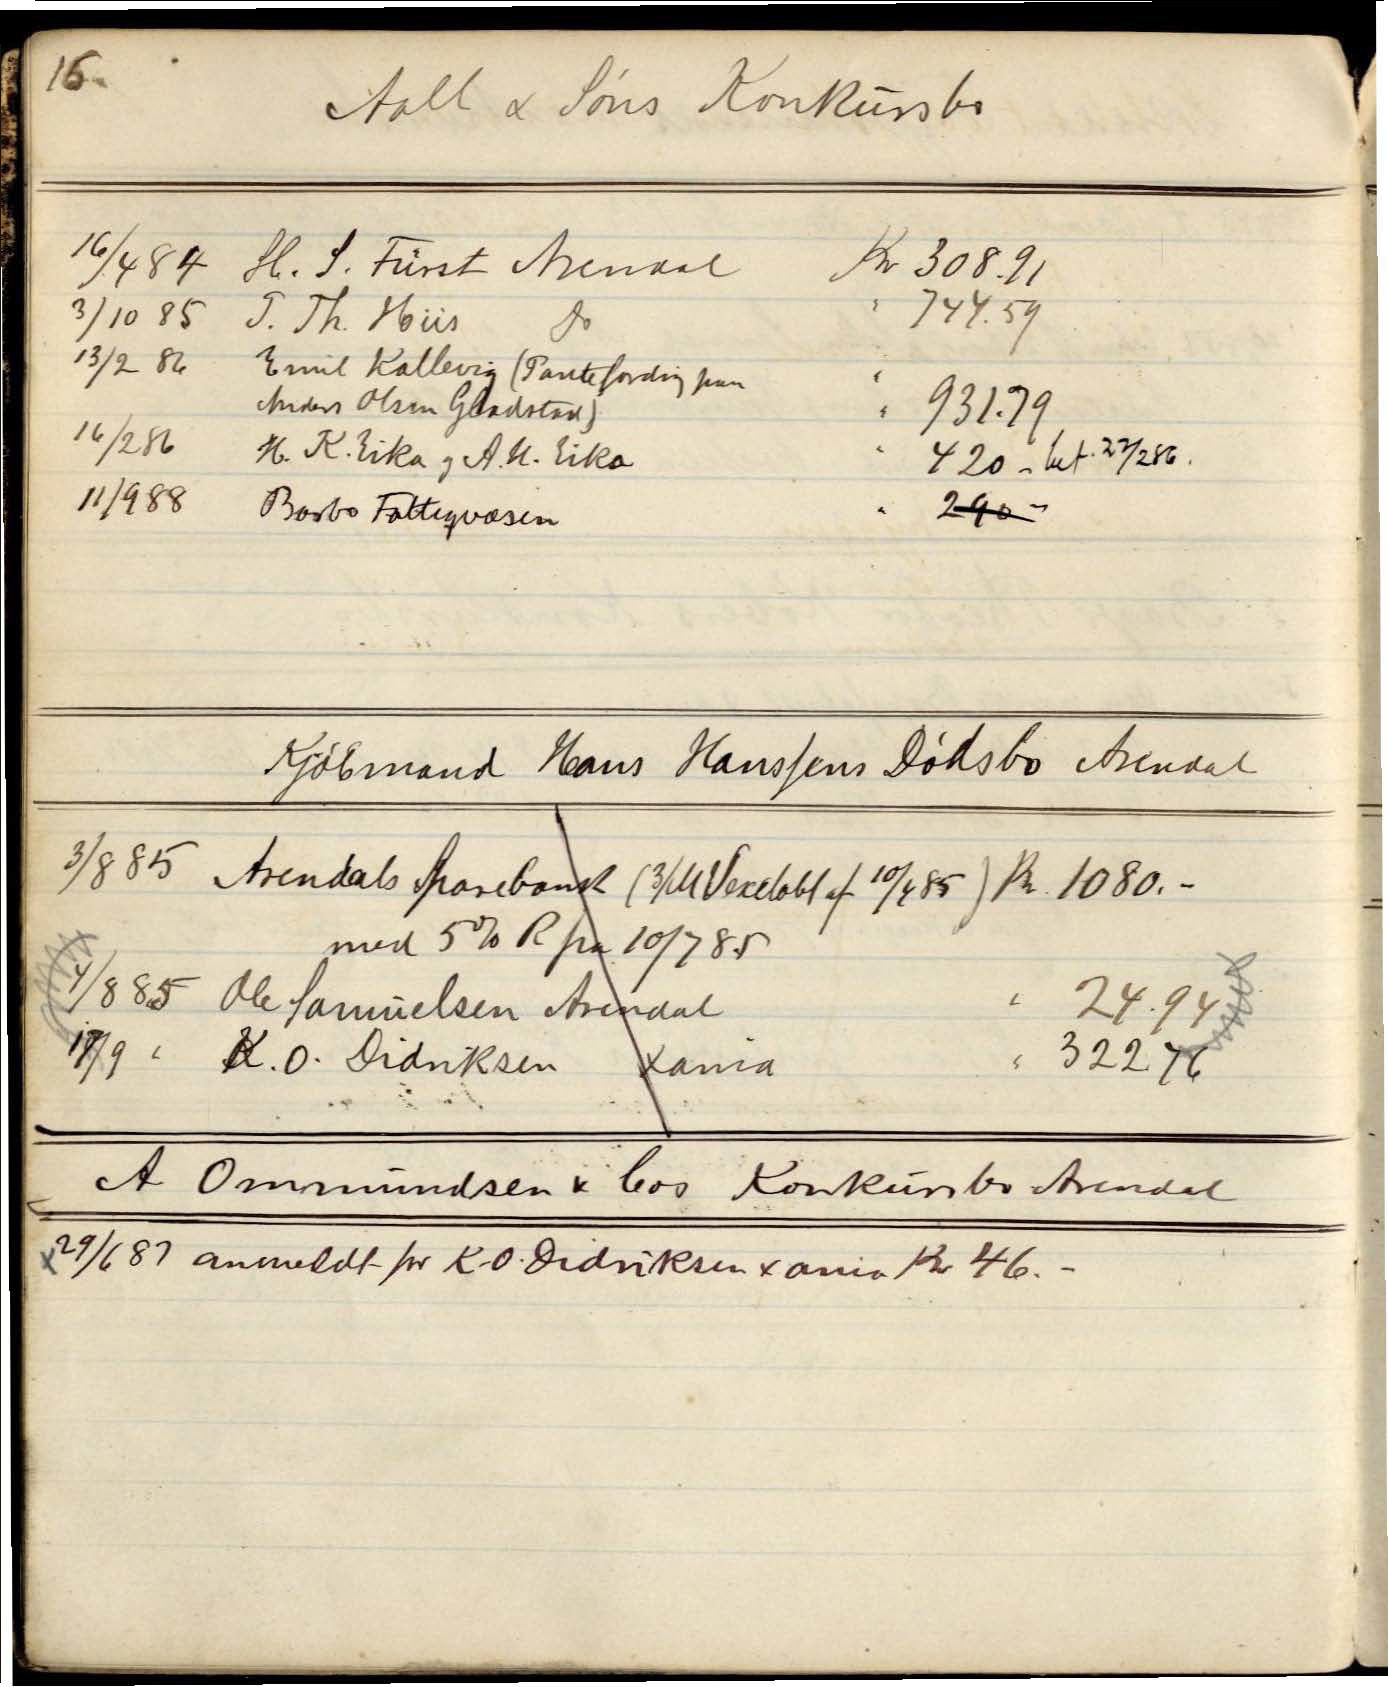 16
Aall & Søns Konkursbo
16/4 84 H. S. Fürst Arendal Kr 308.91
3/10 85 T. Th. Hiis Do " 744.59
13/2 86 Emil Kallevig (Pantefordring paa "
Anders Olsen Gladstad) " 931.79
16/2 86 H. K. Eika og A. H. Eika " 420 - bet. 27/2 86.
11/9 88 Barbo Fattigvæsen " 290 -
Kjöbmand Hans Hanssens Dödsbo Arendal
3/8 85 Arendals Sparebank (3/M Vexelobl af 10/4 85) Kr. 1080.-
med 5% R fra 10/7 85
4/8 85 Ole Samuelsen Arendal " 24.94
17/9 " K. O. Didriksen Xania " 322 76
A Ommundsen & Cos Konkursbo Arendal
x 29/6 87 anmeldt for K. O. Didriksen Xania Kr 46.-